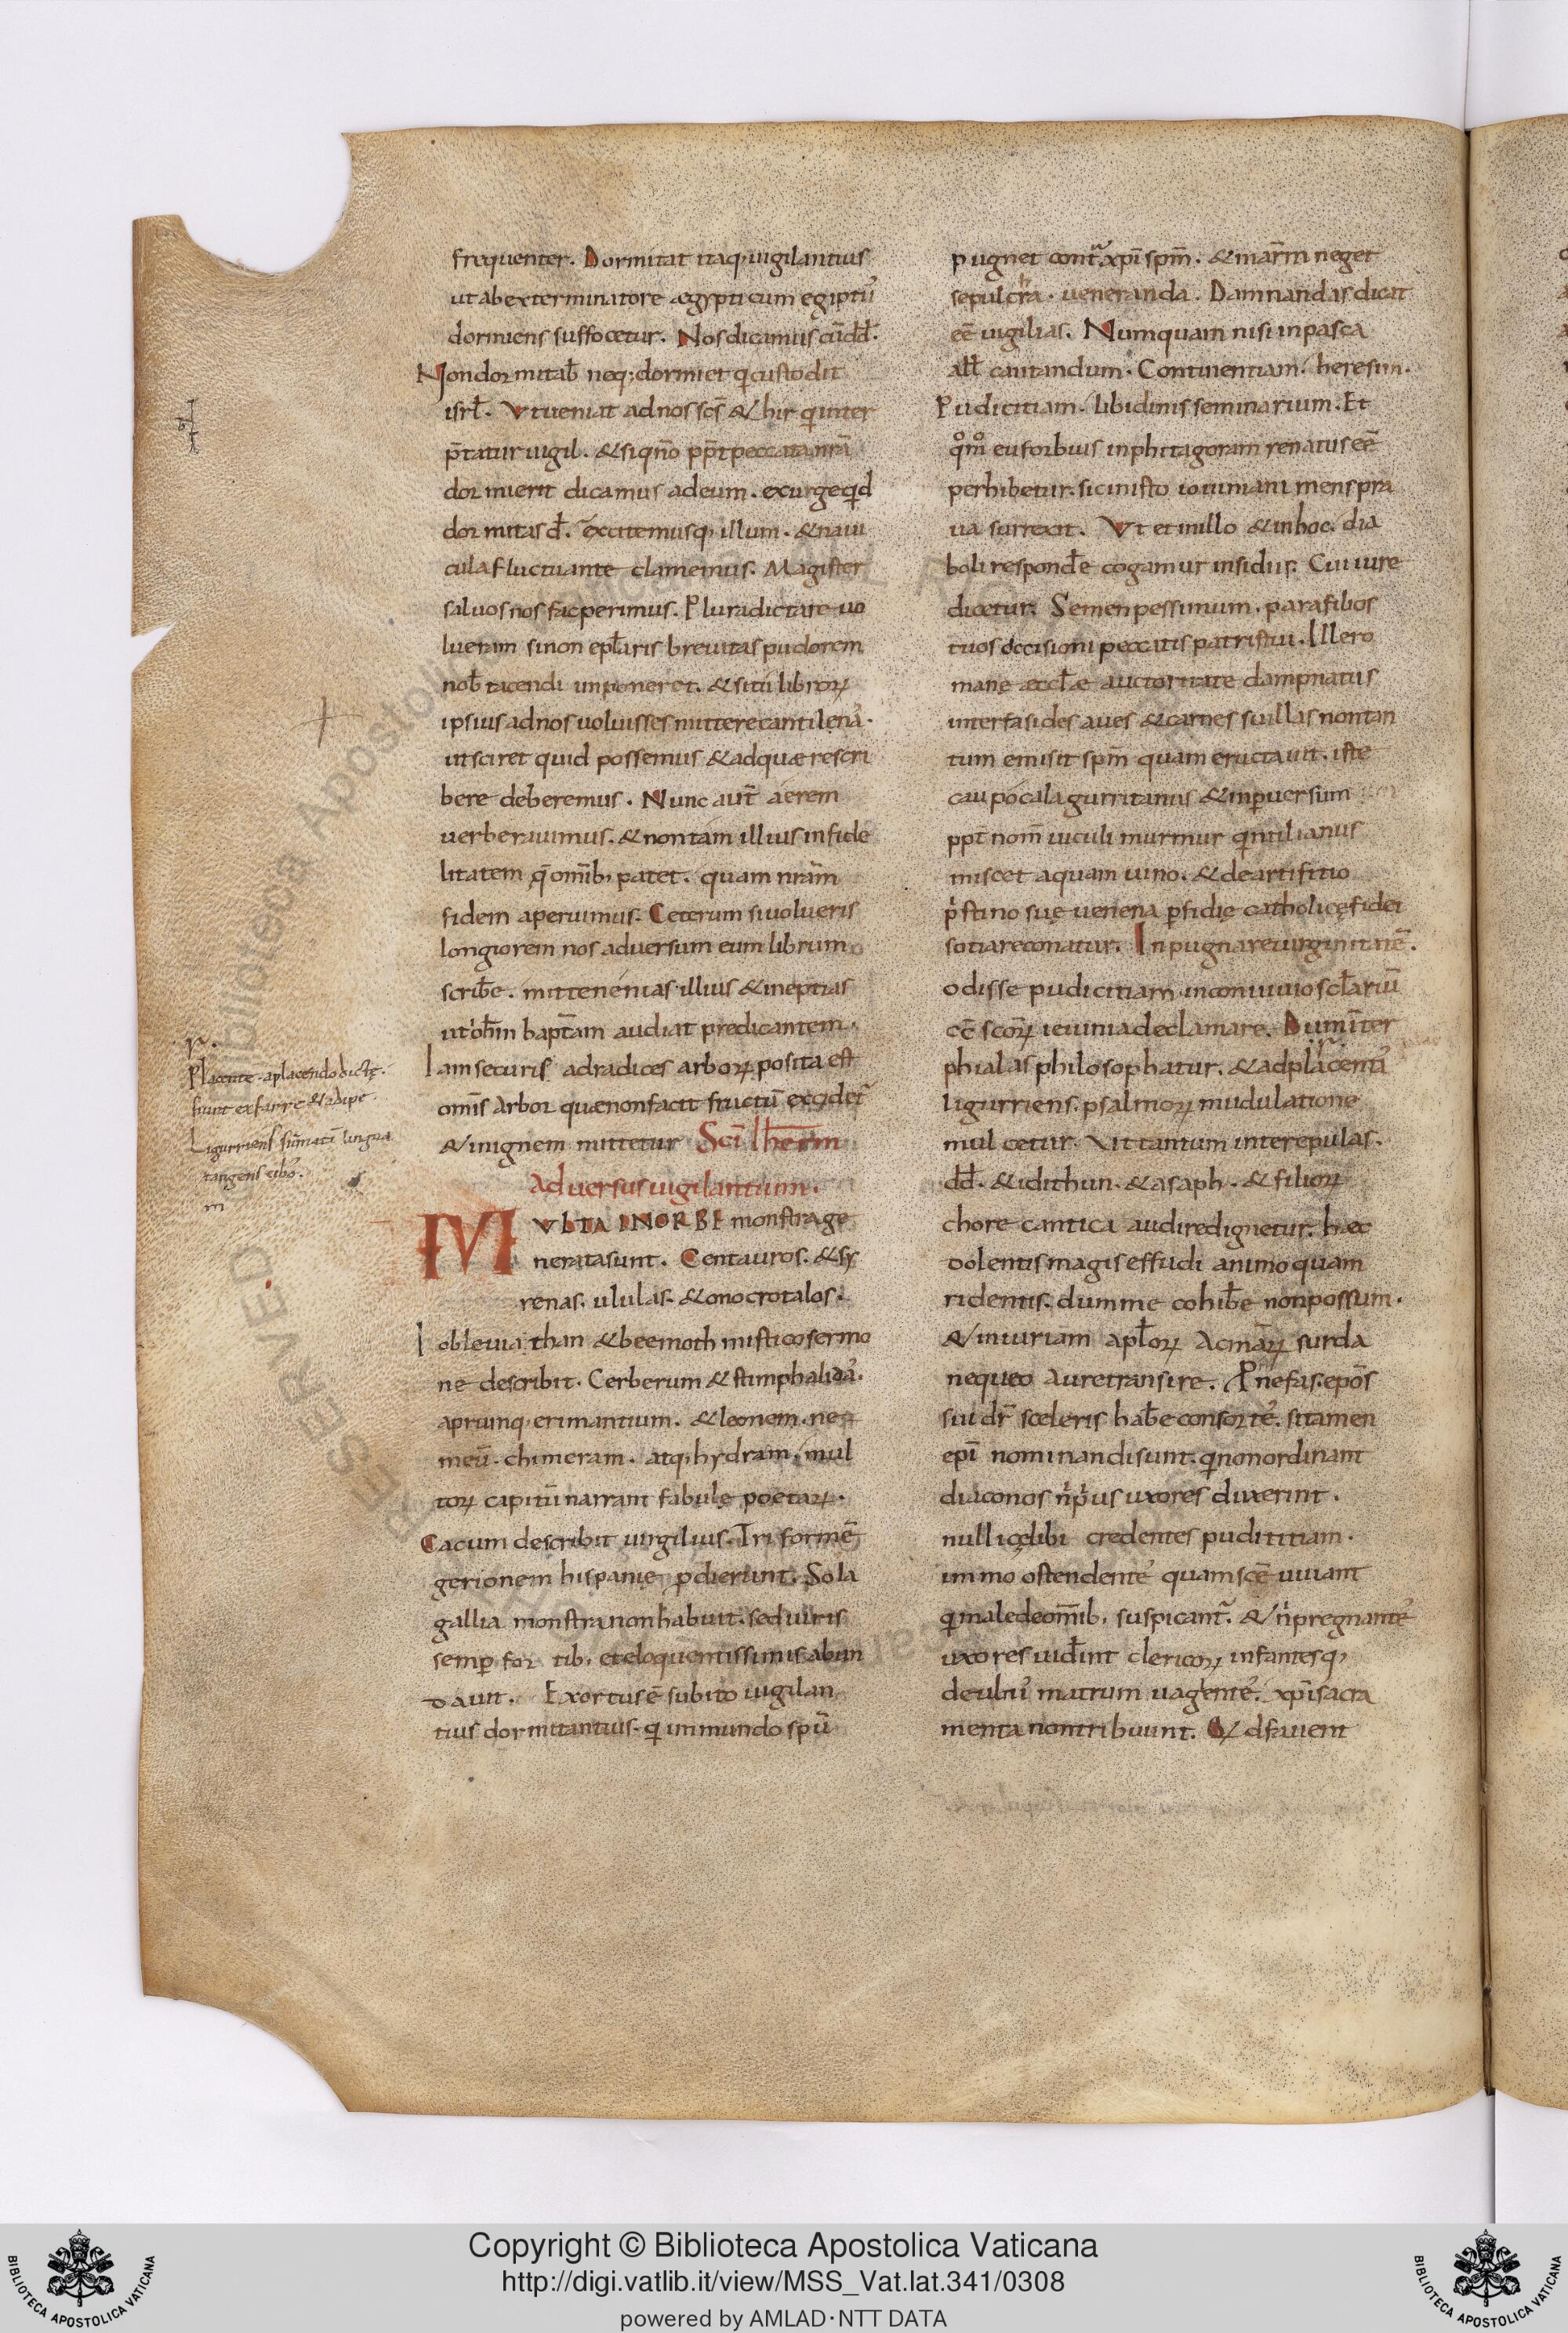 frequenter. Dormitat itaq; uigilantius
ut ab exterminatore ægypti cum egiptũ
dormiens suffocetur. Nos dicamus cũ dd̄.
Non dormitab̄ neq; dormiet q̣ custodit
isrl̄. Vt ueniat ad nos scs̄ & hir q̣ inter
p̄tatur uigil. & siqn̄o pp̄t peccata nr̄a
dormierit dicamus ad eum. exurge qd
dormitas d̄. excitemusq; illum. & naui
cula fluctuante clamemus. Magister
saluos nos fac perimus. Plura dictare uo
lueram si non epl̄aris breuitas pudorem
nob̄ tacendi inponeret. & si tu libroꝝ
ipsius ad nos uoluisses mittere cantilenā.
ut sciret quid possemus & ad quæ rescri
bere deberemus. Nunc aut̄ aerem
uerberauimus. & non tam illius infide
litatem q̄ om̄ib; patet. quam nr̄am
fidem aperuimus. Ceterum si uolueris
longiorem nos aduersum eum librum
scrib̄e. mitte nenias illius & ineptias
ut ioh̄m bapt̄am audiat predicantem.
Iam securis ad radices arboꝝ posita est
om̄s arbor quæ non facit fructũ excidet̄
& in ignem mittetur Scī Iherm̄
Aduersus uigilantium.
MVLTA INORBE monstra ge
nerata sunt. Centauros. & sy
renas. ululas. & onocrotalos.
Iob leuiathan & beemoth mistico sermo
ne describit. Cerberum & stimphalidā.
aprumq; erimantium. & leonem. ne
meũ. chimeram. atq; hydram. mul
toꝝ capitũ narrant fabulę poetaꝝ.
Cacum describit uirgilius. Triformē
gerionem hispanię ꝓdierunt. Sola
gallia monstra non habuit. sed uiris
semp̱ fortib; et eloquentissimis abun
dauit. Exortus ē subito uigilan
tius dormitantius. q̣ inmundo spũ
pugnet contra xp̄i spm̄. & mar̄m neget
sepulchra. ueneranda. Damnandas dicat
eē uigilias. Numquam nisi in pasca
all̄ cantandum. Continentiam. heresim.
Pudicitiam. libidinis seminarium. Et
qͦmͦ euforbuis in phitagoram renatus eē
perhibetur. sic in isto iouiniani mens pra
ua surrexit. Vt et in illo & in hoc. dia
boli respond̄e cogamur insidiis. Cui iure
dicetur. Semen pessimum. para filios
tuos occisioni peccatis patris tui. Ille ro
manę æccl̄æ auctoritate dampnatus
inter fasides aues & carnes suillas non tan
tum emisit spm̄ quam eructauit. iste
caupo calagurritanus & in p̱uersum
ppt̄ nom̄ uiculi murmur q̣ntilianus
miscet aquam uino. & de artifitio
p̓stino suę uenena p̱fidię catholicę fidei
sotiare conatur. Inpugnare uirginitatē.
odisse pudicitiam. in conuiuio scl̄ariũ
cc̄ scōꝝ ieiunia declamare. Dum inter
phialas philosophatur. & ad placentā
ligurriens. psalmoꝝ mudulatione
mulcetur. Vt tantum inter epulas.
dd̄. & idithun. & asaph. & filioꝝ
chore cantica audire dignetur. hæc
dolentis magis effudi animo quam
ridentis. dum me cohib̄e non possum.
& iniuriam apl̄oꝝ ac mar̄ꝝ surda
nequeo aure transire. P nefas. epōs
sui dr̄ sceleris hab̄e consorte᷒. si tamen
epī nominandi sunt. q̣ non ordinant
diaconos n̓ p̓us uxores duxerint.
nulli cęlibi credentes pudititiam.
immo ostendente᷒ quam scē uiuant
q̣ male de om̄ib; suspicant̄. & n̓ pregnante᷒
uxores uid̄int clericoꝝ infantesq;
de ulni᷒ matrum uagente᷒. xp̄i sacra
menta non tribuunt. Q̣d fauent
r̄.
Placentę. a placendo dictę.
fiunt ex farre & adipe
Ligurriens sũmati lingua
tangens cibo᷒.
m
Copyright © Biblioteca Apostolica Vaticana
http://digi.vatlib.it/view/MSS_Vat.lat.341/0308
powered by AMLAD · NTT DATA
BIBLIOTECA APOSTOLICA VATICANA
BIBLIOTECA APOSTOLICA VATICANA